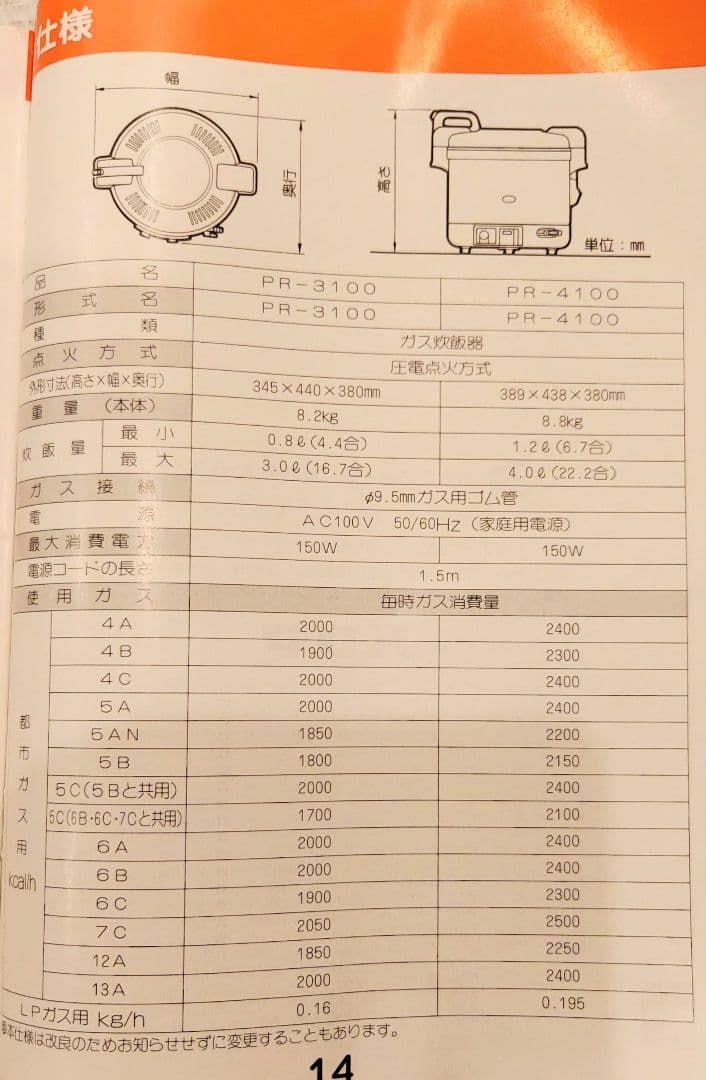 仕様
幅
奥行
高さ
単位：mm
品名 PR-3100 PR-4100
形式名 PR-3100 PR-4100
種類 ガス炊飯器
点火方式 圧電点火方式
外形寸法(高さ×幅×奥行) 345×440×380mm 389×438×380mm
重量(本体) 8.2kg 8.8kg
炊飯量 最小 0.8ℓ(4.4合) 1.2ℓ(6.7合)
最大 3.0ℓ(16.7合) 4.0ℓ(22.2合)
ガス接続 φ9.5mmガス用ゴム管
電源 AC100V 50/60Hz（家庭用電源）
最大消費電力 150W 150W
電源コードの長さ 1.5m
使用ガス 毎時ガス消費量
都市ガス用 kcal/h
4A 2000 2400
4B 1900 2300
4C 2000 2400
5A 2000 2400
5AN 1850 2200
5B 1800 2150
5C(5Bと共用) 2000 2400
5C(6B・6C・7Cと共用) 1700 2100
6A 2000 2400
6B 2000 2400
6C 1900 2300
7C 2050 2500
12A 1850 2250
13A 2000 2400
LPガス用 kg/h 0.16 0.195
●本仕様は改良のためお知らせせずに変更することもあります。
14